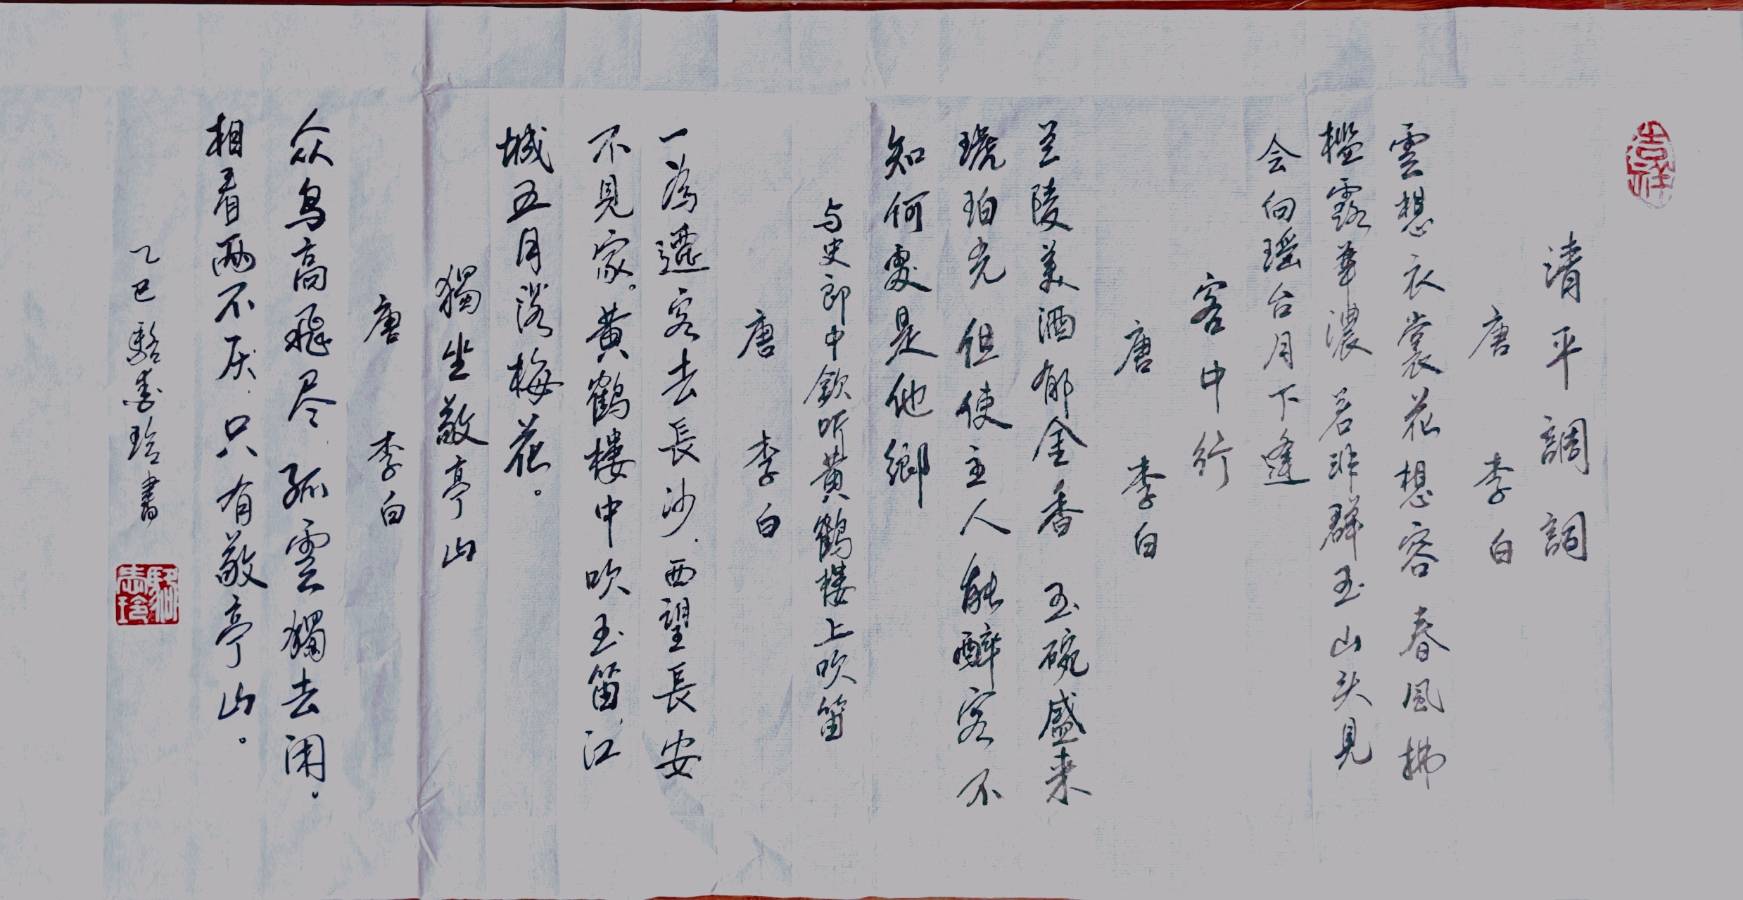 吉祥
清平調詞
唐 李白
雲想衣裳花想容 春風拂
槛露華濃 若非群玉山头見
会向瑶台月下逢
客中行
唐 李白
兰陵美酒郁金香 玉碗盛来
琥珀光 但使主人能醉客 不
知何處是他鄉
与史郎中欽听黄鶴樓上吹笛
唐 李白
一為遷客去長沙，西望長安
不見家。黄鶴樓中吹玉笛，江
城五月落梅花。
獨坐敬亭山
唐 李白
众鳥高飛尽，孤雲獨去闲。
相看兩不厌，只有敬亭山。
乙巳 駱玲書